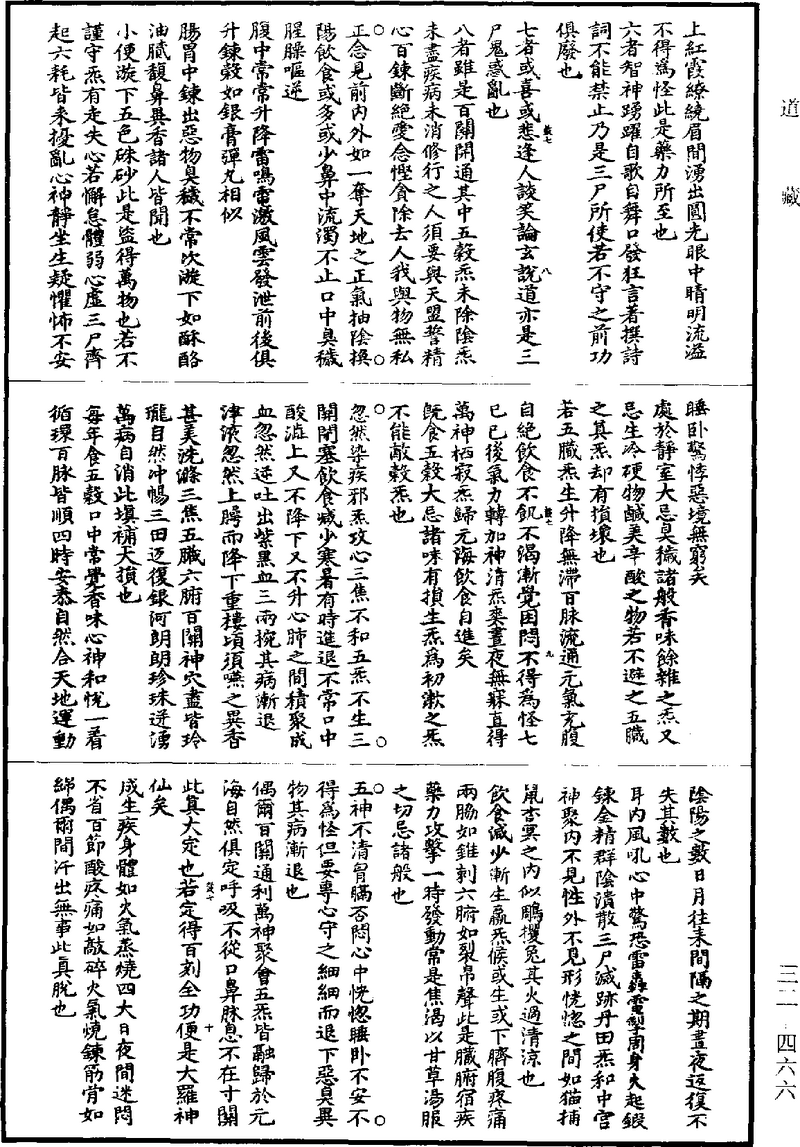 道藏
上紅霞繚繞眉間湧出圓光眼中睛明流溢
不得為怪此是藥力所至也
六者智神踴躍自歌自舞口發狂言著撰詩
詞不能禁止乃是三尸所使若不守之前功
俱廢也
七者或喜或悲逢人談笑論玄說道亦是三
尸鬼惑亂也
八者雖是百關開通其中五穀炁未除陰炁
未盡疾病未消修行之人須要與天盟誓精
心百鍊斷絕愛念慳貪除去人我與物無私
正念見前內外如一奪天地之正氣抽陰換
陽飲食或多或少鼻中流濁不止口中臭穢
腥臊嘔逆
腹中常常升降雷鳴電激風雲發泄前後俱
升鍊穀如銀膏彈丸相似
腸胃中鍊出惡物臭穢不常次漩下如酥酪
油膩馥鼻異香諸人皆聞也
小便漩下五色硃砂此是盜得萬物也若不
謹守炁有走失心若懈怠體弱心虛三尸齊
起六耗皆來擾亂心神靜坐生疑懼怖不安
睡臥驚悸惡境無窮矣
處於靜室大忌臭穢諸般香味餘雜之炁又
忌生冷硬物鹹美辛酸之物若不避之五臟
之真炁却有損壞也
若五臟炁生升降無滯百脉流通元氣充腹
自絕飲食不飢不渴漸覺困悶不得為怪七
七已後氣力轉加神清炁爽晝夜無寐直得
萬神栖寂炁歸元海飲食自進矣
既食五穀大忌諸味有損生炁為初漱之炁
不能敵穀炁也
忽然染疾邪炁攻心三焦不和五炁不生三
關閉塞飲食減少寒暑有時進退不常口中
酸澁上又不降下又不升心肺之間積聚成
血忽然逆吐出紫黑血三兩椀其病漸退
津液忽然上腭而降下重樓頃須嚥之異香
甚美洗滌三焦五臟六腑百關神穴盡皆玲
瓏自然沖暢三田迈復銀河朗朗珍珠迸湧
萬病自消此填補大損也
每年食五穀口中常覺香味心神和悅一着
循環百脉皆順四時安泰自然合天地運動
陰陽之數日月往來間隔之期晝夜返復不
失其數也
耳內風吼心中驚恐雷轟電掣周身火起鍜
鍊金精群陰潰散三尸滅跡丹田炁和中宮
神聚內不見性外不見形恍惚之間如猫捕
鼠杳冥之內似鵰攫兔其火過清涼也
飲食減少漸生羸炁候或生或下臍腹疼痛
兩脇如錐刺六腑如裂帛聲此是臟腑宿疾
藥力攻擊一時發動常是焦渴以甘草湯服
之切忌諸般也
五神不清胃膈否悶心中恍惚睡臥不安不
得為怪但要專心守之細細而退下惡臭異
物其病漸退也
偶爾百關通利萬神聚會五炁皆融歸於元
海自然俱定呼吸不從口鼻脉息不在寸關
此真大定也若定得百刻全功便是大羅神
仙矣
成生疾身體如火氣蒸燒四大日夜間迷悶
不省百節酸疼痛如敲碎火氣燒鍊筋骨如
綿偶爾間汗出無事此真脫也
三二-四六六